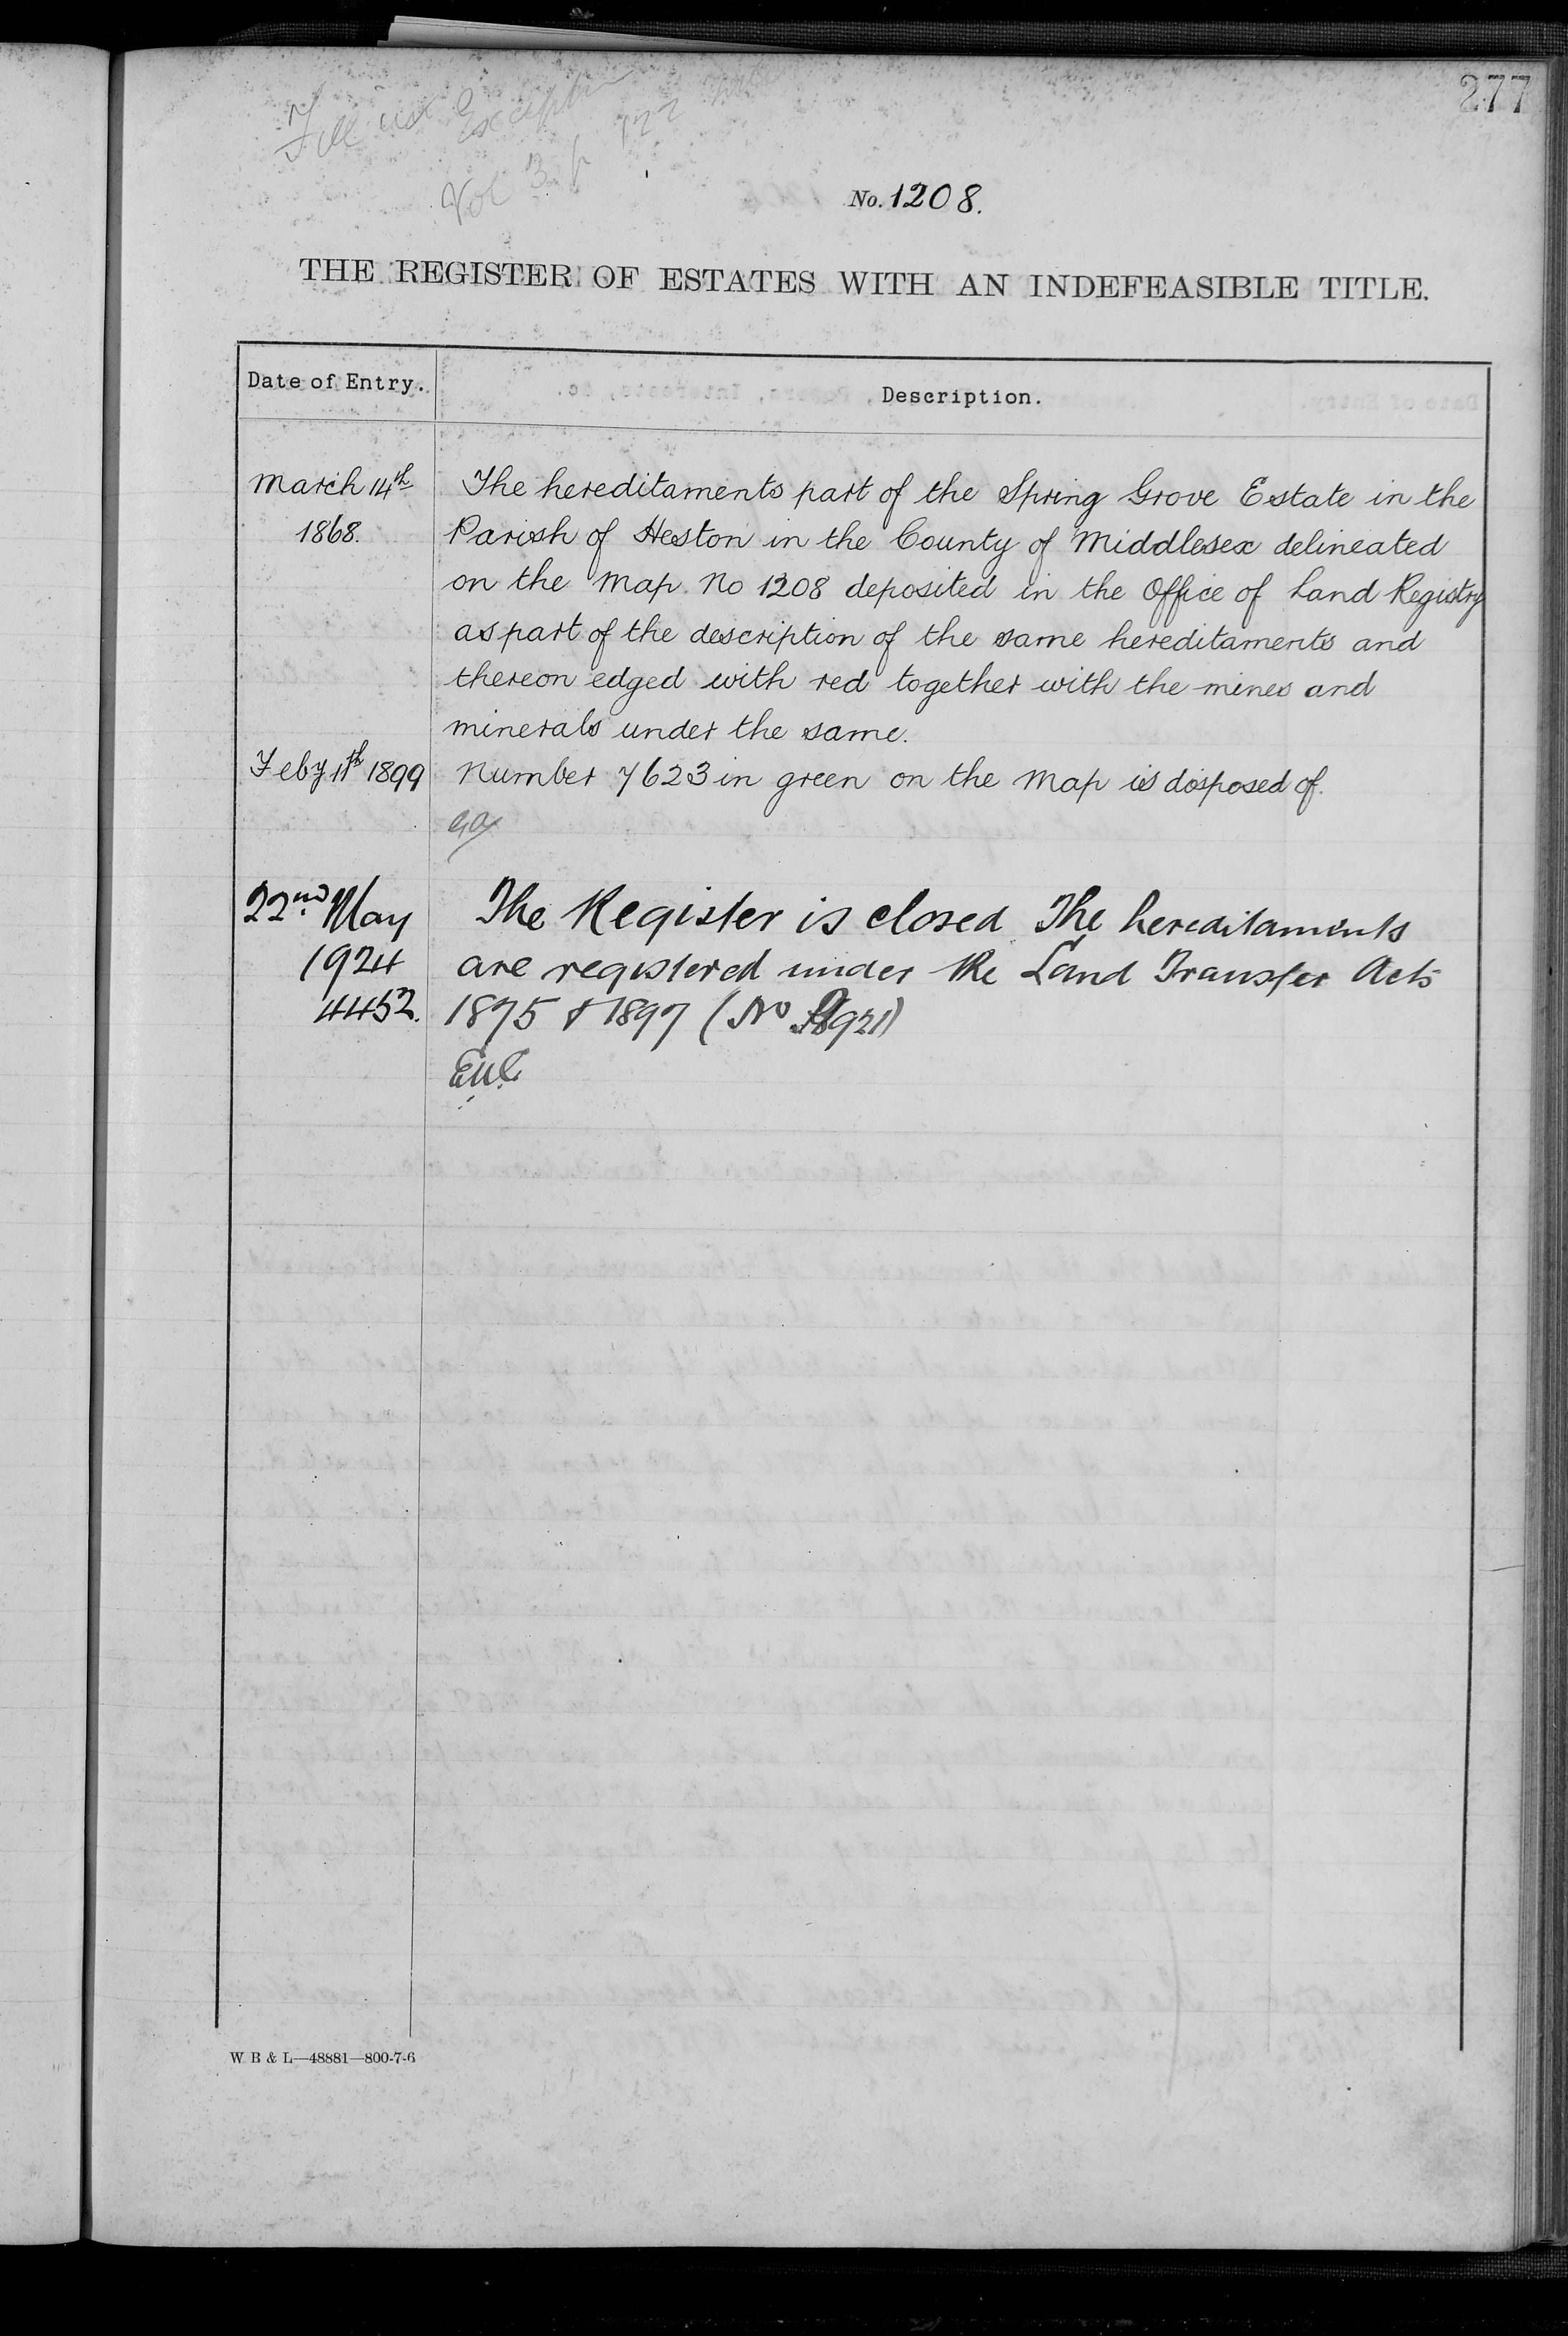 277
Vol 3 p 122
No. 1208.
THE REGISTER OF ESTATES WITH AN INDEFEASIBLE TITLE.
Date of Entry. Description.
March 14th The hereditaments part of the Spring Grove Estate in the
1868. Parish of Heston in the County of Middlesex delineated
on the Map No 1208 deposited in the Office of Land Registry
as part of the description of the same hereditaments and
thereon edged with red together with the mines and
minerals under the same.
Feby 11th 1899 Number 7623 in green on the Map is disposed of.
22nd May The Register is closed The hereditaments
1924 are registered under the Land Transfer Acts
4452. 1875 & 1897 (No
W B & L—48881—800-7-6